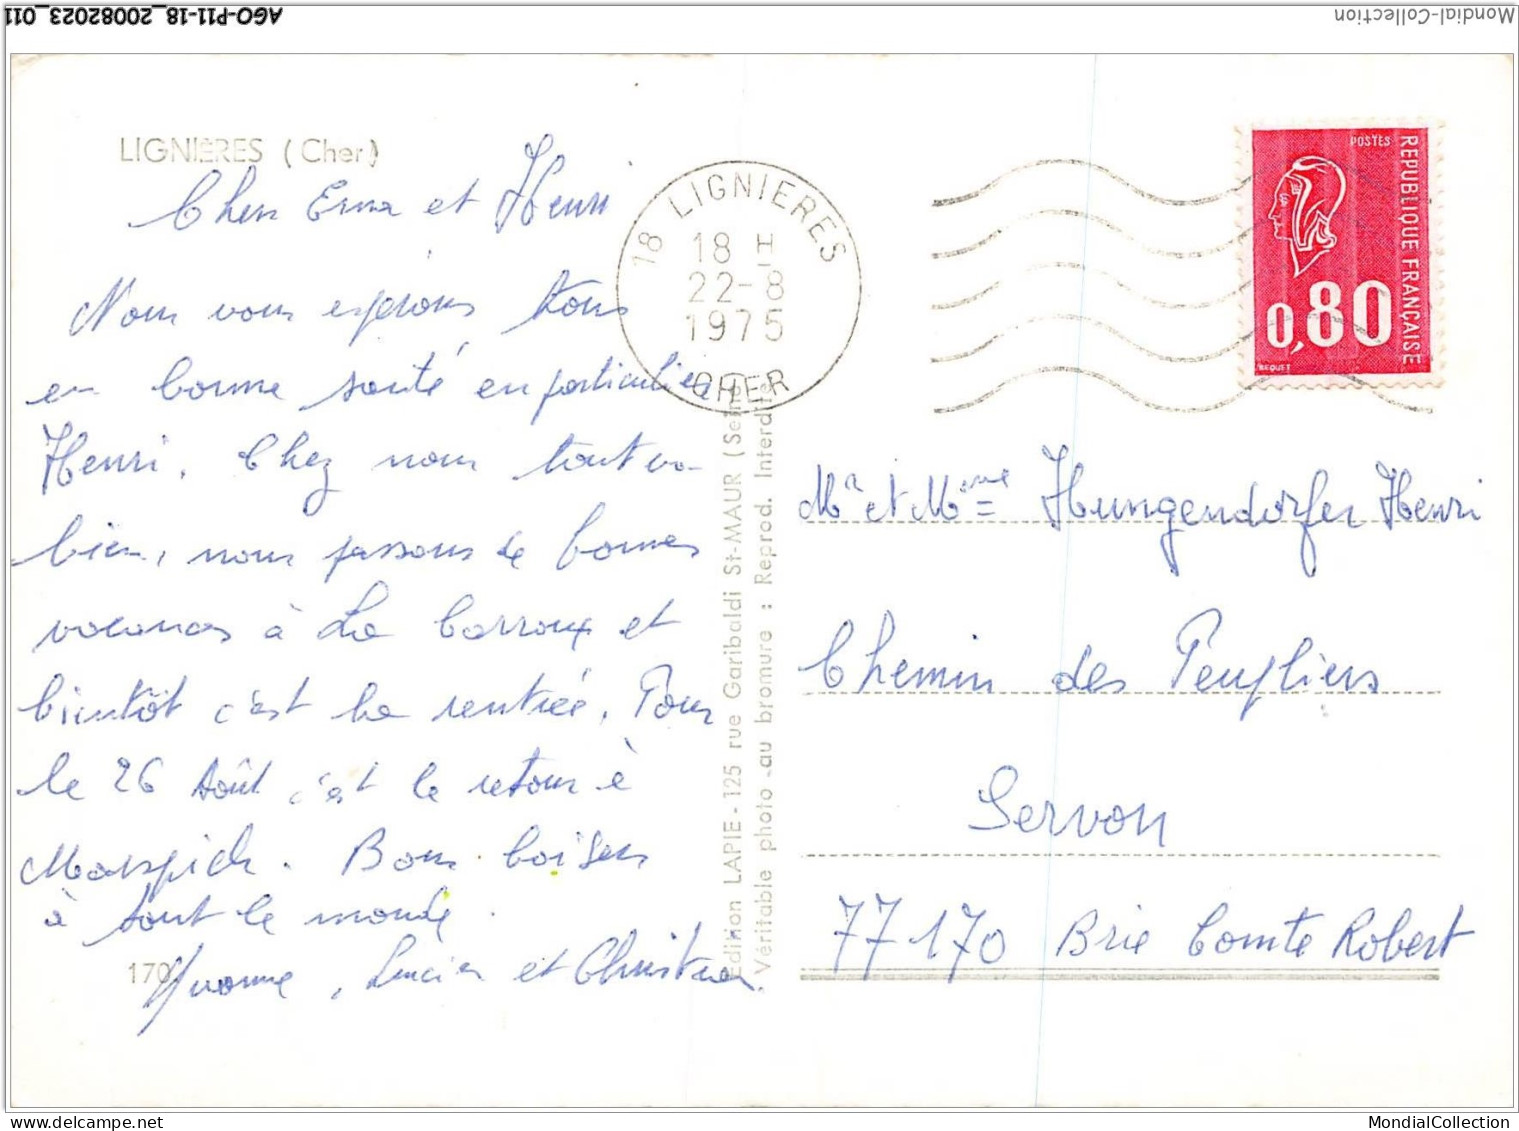 AGO-P11-18_20082023_011
Mondial-Collection
LIGNIÈRES (Cher)
Chers Erna et Henri
Nous vous espérons tous
en bonne santé en particulier
Henri. Chez nous tout va
bien, nous passons de bonnes
vacances à La Carroux et
bientôt c'est la rentrée. Pour
le 26 Août c'est le retour à
. Bons baisers
à tout le monde.
Yvonne, Lucien et Christian.
170
18 LIGNIERES
18 H
22-8
1975
CHER
Edition LAPIE - 125 rue Garibaldi St-MAUR (Seine)
Véritable photo au bromure : Reprod. Interdite
POSTES
REPUBLIQUE FRANCAISE
0,80
BEQUET
Mr et Mme Hungendorfer Henri
Chemin des Peupliers
Servon
77170 Brie Comte Robert
MondialCollection